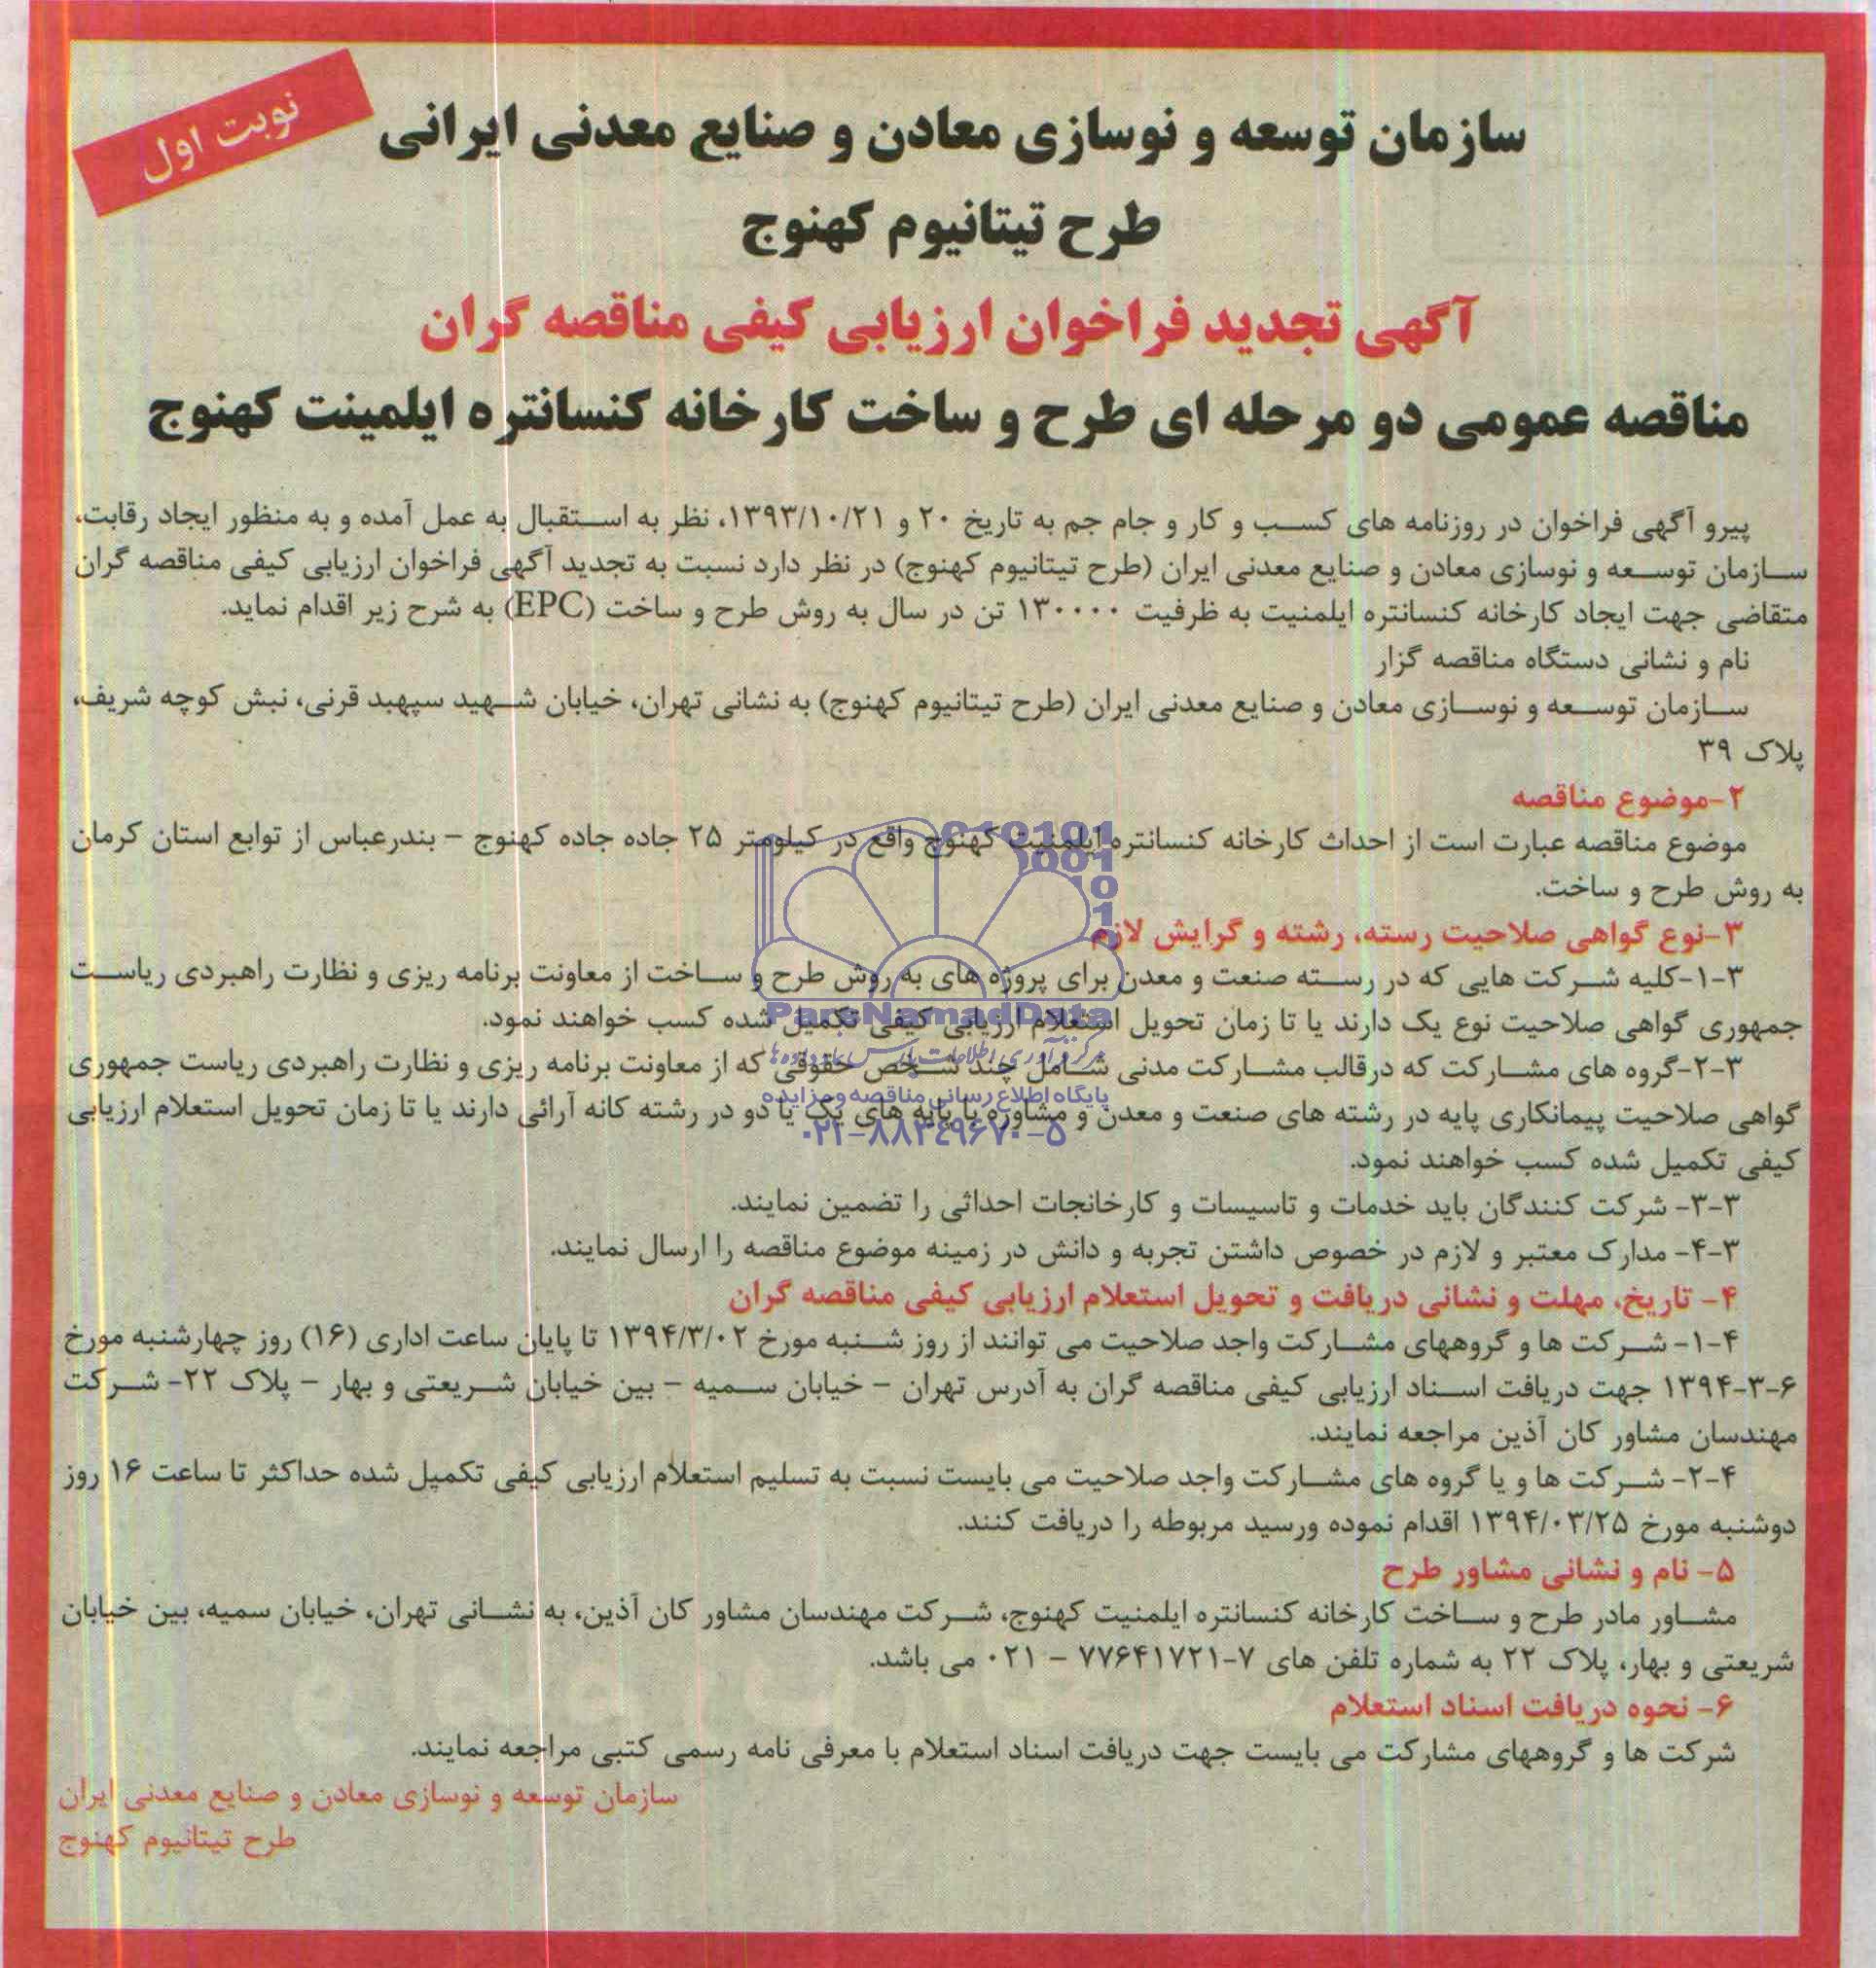 نوبت اول
سازمان توسعه و نوسازی معادن و صنایع معدنی ایرانی
طرح تیتانیوم کهنوج
آگهی تجدید فراخوان ارزیابی کیفی مناقصه گران
مناقصه عمومی دو مرحله ای طرح و ساخت کارخانه کنسانتره ایلمینت کهنوج
پیرو آگهی فراخوان در روزنامه های کسب و کار و جام جم به تاریخ ۲۰ و ۱۳۹۳/۱۰/۲۱، نظر به استقبال به عمل آمده و به منظور ایجاد رقابت،
سازمان توسعه و نوسازی معادن و صنایع معدنی ایران (طرح تیتانیوم کهنوج) در نظر دارد نسبت به تجدید آگهی فراخوان ارزیابی کیفی مناقصه گران
متقاضی جهت ایجاد کارخانه کنسانتره ایلمنیت به ظرفیت ۱۳۰۰۰۰ تن در سال به روش طرح و ساخت (EPC) به شرح زیر اقدام نماید.
نام و نشانی دستگاه مناقصه گزار
سازمان توسعه و نوسازی معادن و صنایع معدنی ایران (طرح تیتانیوم کهنوج) به نشانی تهران، خیابان شهید سپهبد قرنی، نبش کوچه شریف،
پلاک ۳۹
۲-موضوع مناقصه
موضوع مناقصه عبارت است از احداث کارخانه کنسانتره ایلمنیت کهنوج واقع در کیلومتر ۲۵ جاده جاده کهنوج – بندرعباس از توابع استان کرمان
به روش طرح و ساخت.
۳-نوع گواهی صلاحیت رسته، رشته و گرایش لازم
۳-۱-کلیه شرکت هایی که در رسته صنعت و معدن برای پروژه های به روش طرح و ساخت از معاونت برنامه ریزی و نظارت راهبردی ریاست
جمهوری گواهی صلاحیت نوع یک دارند یا تا زمان تحویل استعلام ارزیابی کیفی تکمیل شده کسب خواهند نمود.
۳-۲-گروه های مشارکت که درقالب مشارکت مدنی شامل چند شخص حقوقی که از معاونت برنامه ریزی و نظارت راهبردی ریاست جمهوری
گواهی صلاحیت پیمانکاری پایه در رشته های صنعت و معدن و مشاوره با پایه های یک یا دو در رشته کانه آرائی دارند یا تا زمان تحویل استعلام ارزیابی
کیفی تکمیل شده کسب خواهند نمود.
۳-۳- شرکت کنندگان باید خدمات و تاسیسات و کارخانجات احداثی را تضمین نمایند.
۳-۴- مدارک معتبر و لازم در خصوص داشتن تجربه و دانش در زمینه موضوع مناقصه را ارسال نمایند.
۴- تاریخ، مهلت و نشانی دریافت و تحویل استعلام ارزیابی کیفی مناقصه گران
۴-۱- شرکت ها و گروههای مشارکت واجد صلاحیت می توانند از روز شنبه مورخ ۱۳۹۴/۳/۰۲ تا پایان ساعت اداری (۱۶) روز چهارشنبه مورخ
۱۳۹۴-۳-۶ جهت دریافت اسناد ارزیابی کیفی مناقصه گران به آدرس تهران – خیابان سمیه – بین خیابان شریعتی و بهار – پلاک ۲۲- شرکت
مهندسان مشاور کان آذین مراجعه نمایند.
۴-۲- شرکت ها و یا گروه های مشارکت واجد صلاحیت می بایست نسبت به تسلیم استعلام ارزیابی کیفی تکمیل شده حداکثر تا ساعت ۱۶ روز
دوشنبه مورخ ۱۳۹۴/۰۳/۲۵ اقدام نموده ورسید مربوطه را دریافت کنند.
۵- نام و نشانی مشاور طرح
مشاور مادر طرح و ساخت کارخانه کنسانتره ایلمنیت کهنوج، شرکت مهندسان مشاور کان آذین، به نشانی تهران، خیابان سمیه، بین خیابان
شریعتی و بهار، پلاک ۲۲ به شماره تلفن های ۷-۷۷۶۴۱۷۲۱ – ۰۲۱ می باشد.
۶- نحوه دریافت اسناد استعلام
شرکت ها و گروههای مشارکت می بایست جهت دریافت اسناد استعلام با معرفی نامه رسمی کتبی مراجعه نمایند.
سازمان توسعه و نوسازی معادن و صنایع معدنی ایران
طرح تیتانیوم کهنوج
ParsNamadData
پایگاه اطلاع رسانی مناقصه و مزایده
۰۲۱-۸۸۳۴۹۶۷۰-۵